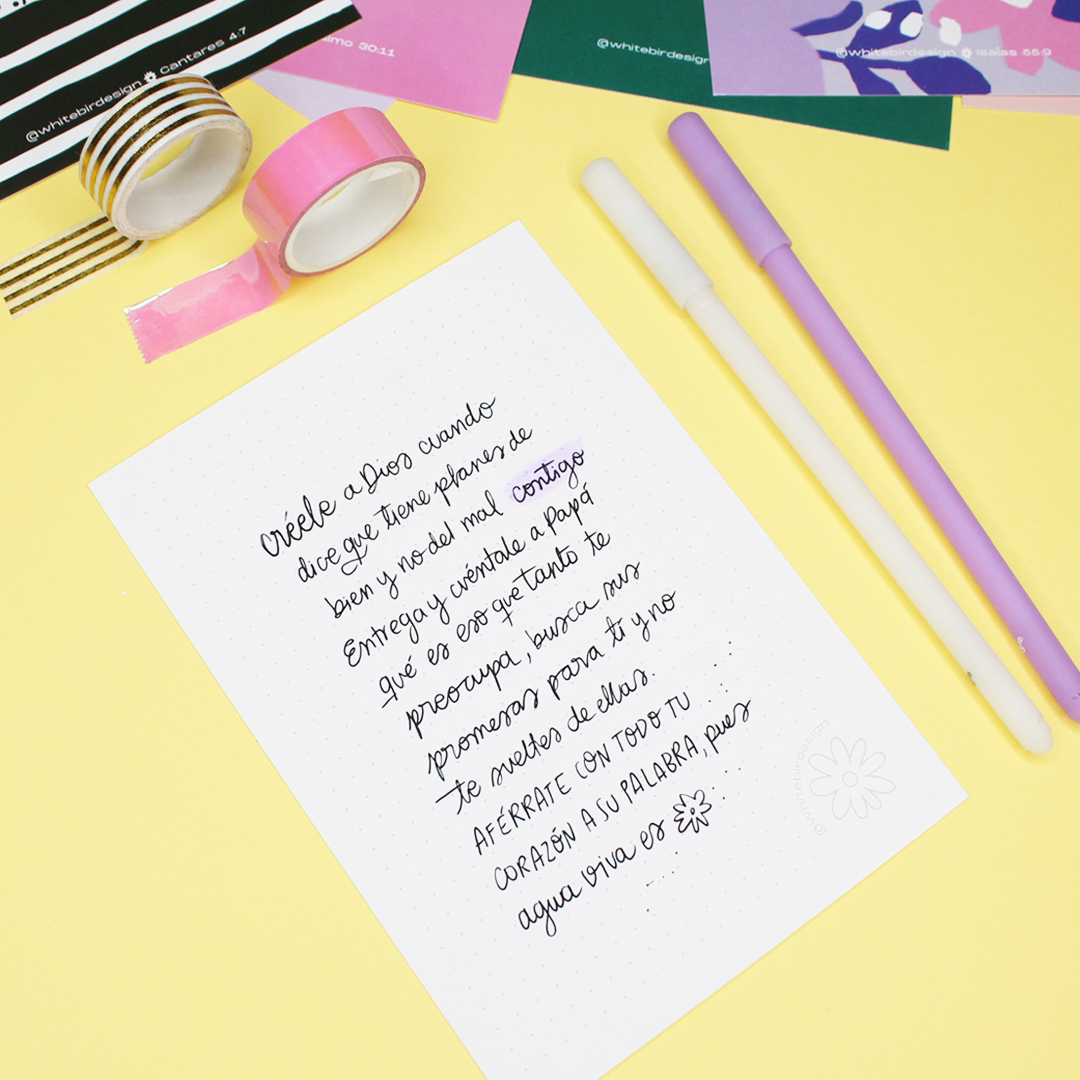 @whitebirdesign cantares 4:7
lmo 30:11
@whitebirdesign
@whitebirdesign Isaías 55:9
créele a Dios cuando
dice que tiene planes de
bien y no del mal contigo
Entrega y cuéntale a Papá
qué es eso que tanto te
preocupa, busca sus
promesas para ti y no
te sueltes de ellas.
AFÉRRATE CON TODO TU
CORAZÓN A SU PALABRA, pues
agua viva es
@whitebirdesign